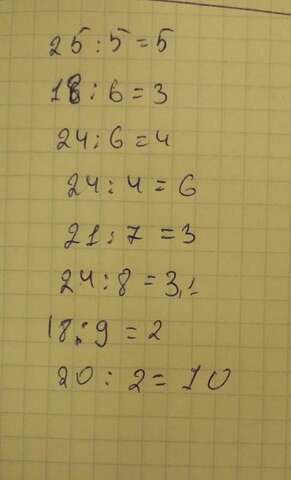 25:5=5
18:6=3
24:6=4
24:4=6
21:7=3
24:8=3
18:9=2
20:2=10